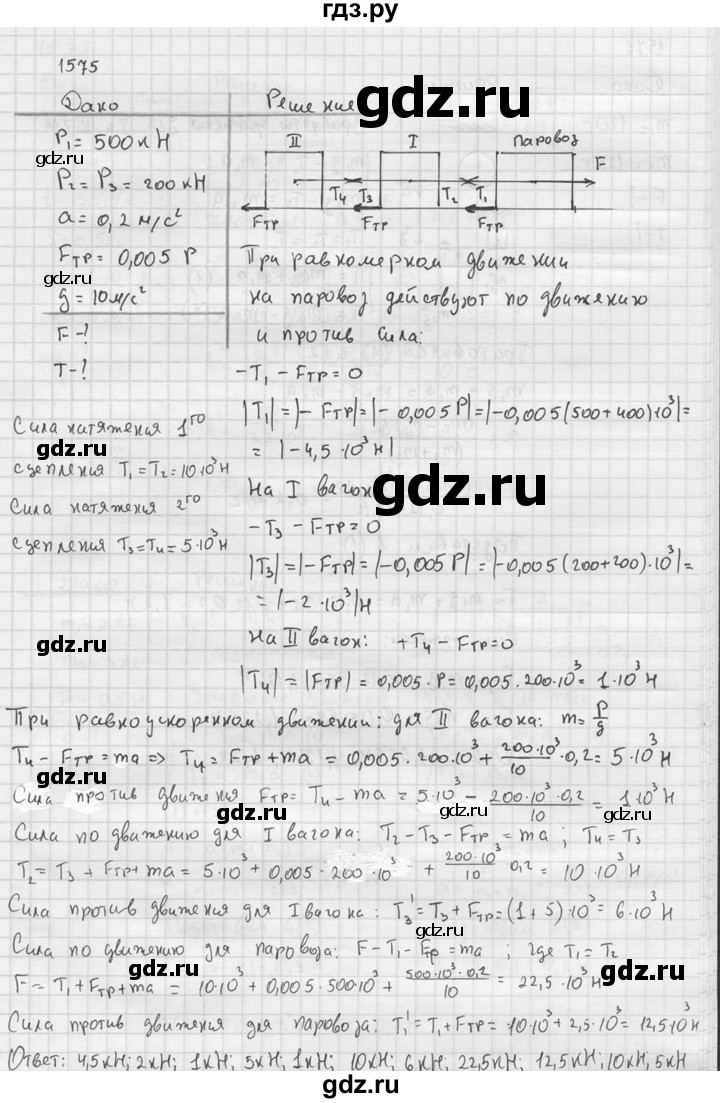 гдз.ру
1575
Дано
Решение
P₁ = 500 кН
P₂ = P₃ = 200 кН
a = 0,2 м/с²
Fтр = 0,005 P
g = 10 м/с²
F - ?
T - ?
II I паровоз
T₄ T₃ T₂ T₁ F
Fтр Fтр Fтр
При равномерном движении
на паровоз действуют по движению
и против сила:
-T₁ - Fтр = 0
|T₁| = |- Fтр| = |- 0,005 P| = |-0,005(500+400)·10³| =
= |-4,5·10³ Н|
На I вагон
-T₃ - Fтр = 0
|T₃| = |-Fтр| = |-0,005 P| = |-0,005(200+200)·10³| =
= |-2·10³| Н
На II вагон: +T₄ - Fтр = 0
|T₄| = |Fтр| = 0,005·P = 0,005·200·10³ = 1·10³ Н
Сила натяжения 1го
gdz.ru
сцепления T₁ = T₂ = 10·10³ Н
Сила натяжения 2го
gdz.ru
сцепления T₃ = T₄ = 5·10³ Н
gdz.ru
gdz.ru
gdz.ru
gdz.ru
gdz.ru
gdz.ru
При равноускоренном движении: для II вагона: m = P/g
T₄ - Fтр = ma => T₄ = Fтр + ma = 0,005·200·10³ + 200·10³/10·0,2 = 5·10³ Н
Сила против движения Fтр = T₄ - ma = 5·10³ - 200·10³·0,2/10 = 1·10³ Н
gdz.ru gdz.ru
Сила по движению для I вагона: T₂ - T₃ - Fтр = ma; T₄ = T₃
T₂ = T₃ + Fтр + ma = 5·10³ + 0,005·200·10³ + 200·10³/10 0,2 = 10·10³ Н
gdz.ru
Сила против движения для I вагона: T₃' = T₃ + Fтр = (1+5)·10³ = 6·10³ Н
Сила по движению для паровоза: F - T₁ - Fтр = ma; где T₁ = T₂
gdz.ru gdz.ru
F = T₁ + Fтр + ma = 10·10³ + 0,005·500·10³ + 500·10³·0,2/10 = 22,5·10³ Н
Сила против движения для паровоза: T₁' = T₁ + Fтр = 10·10³ + 2,5·10³ = 12,5·10³ Н
gdz.ru
Ответ: 4,5кН; 2кН; 1кН; 5кН; 1кН; 10кН; 6кН; 22,5кН; 12,5кН; 10кН, 5кН
gdz.ru